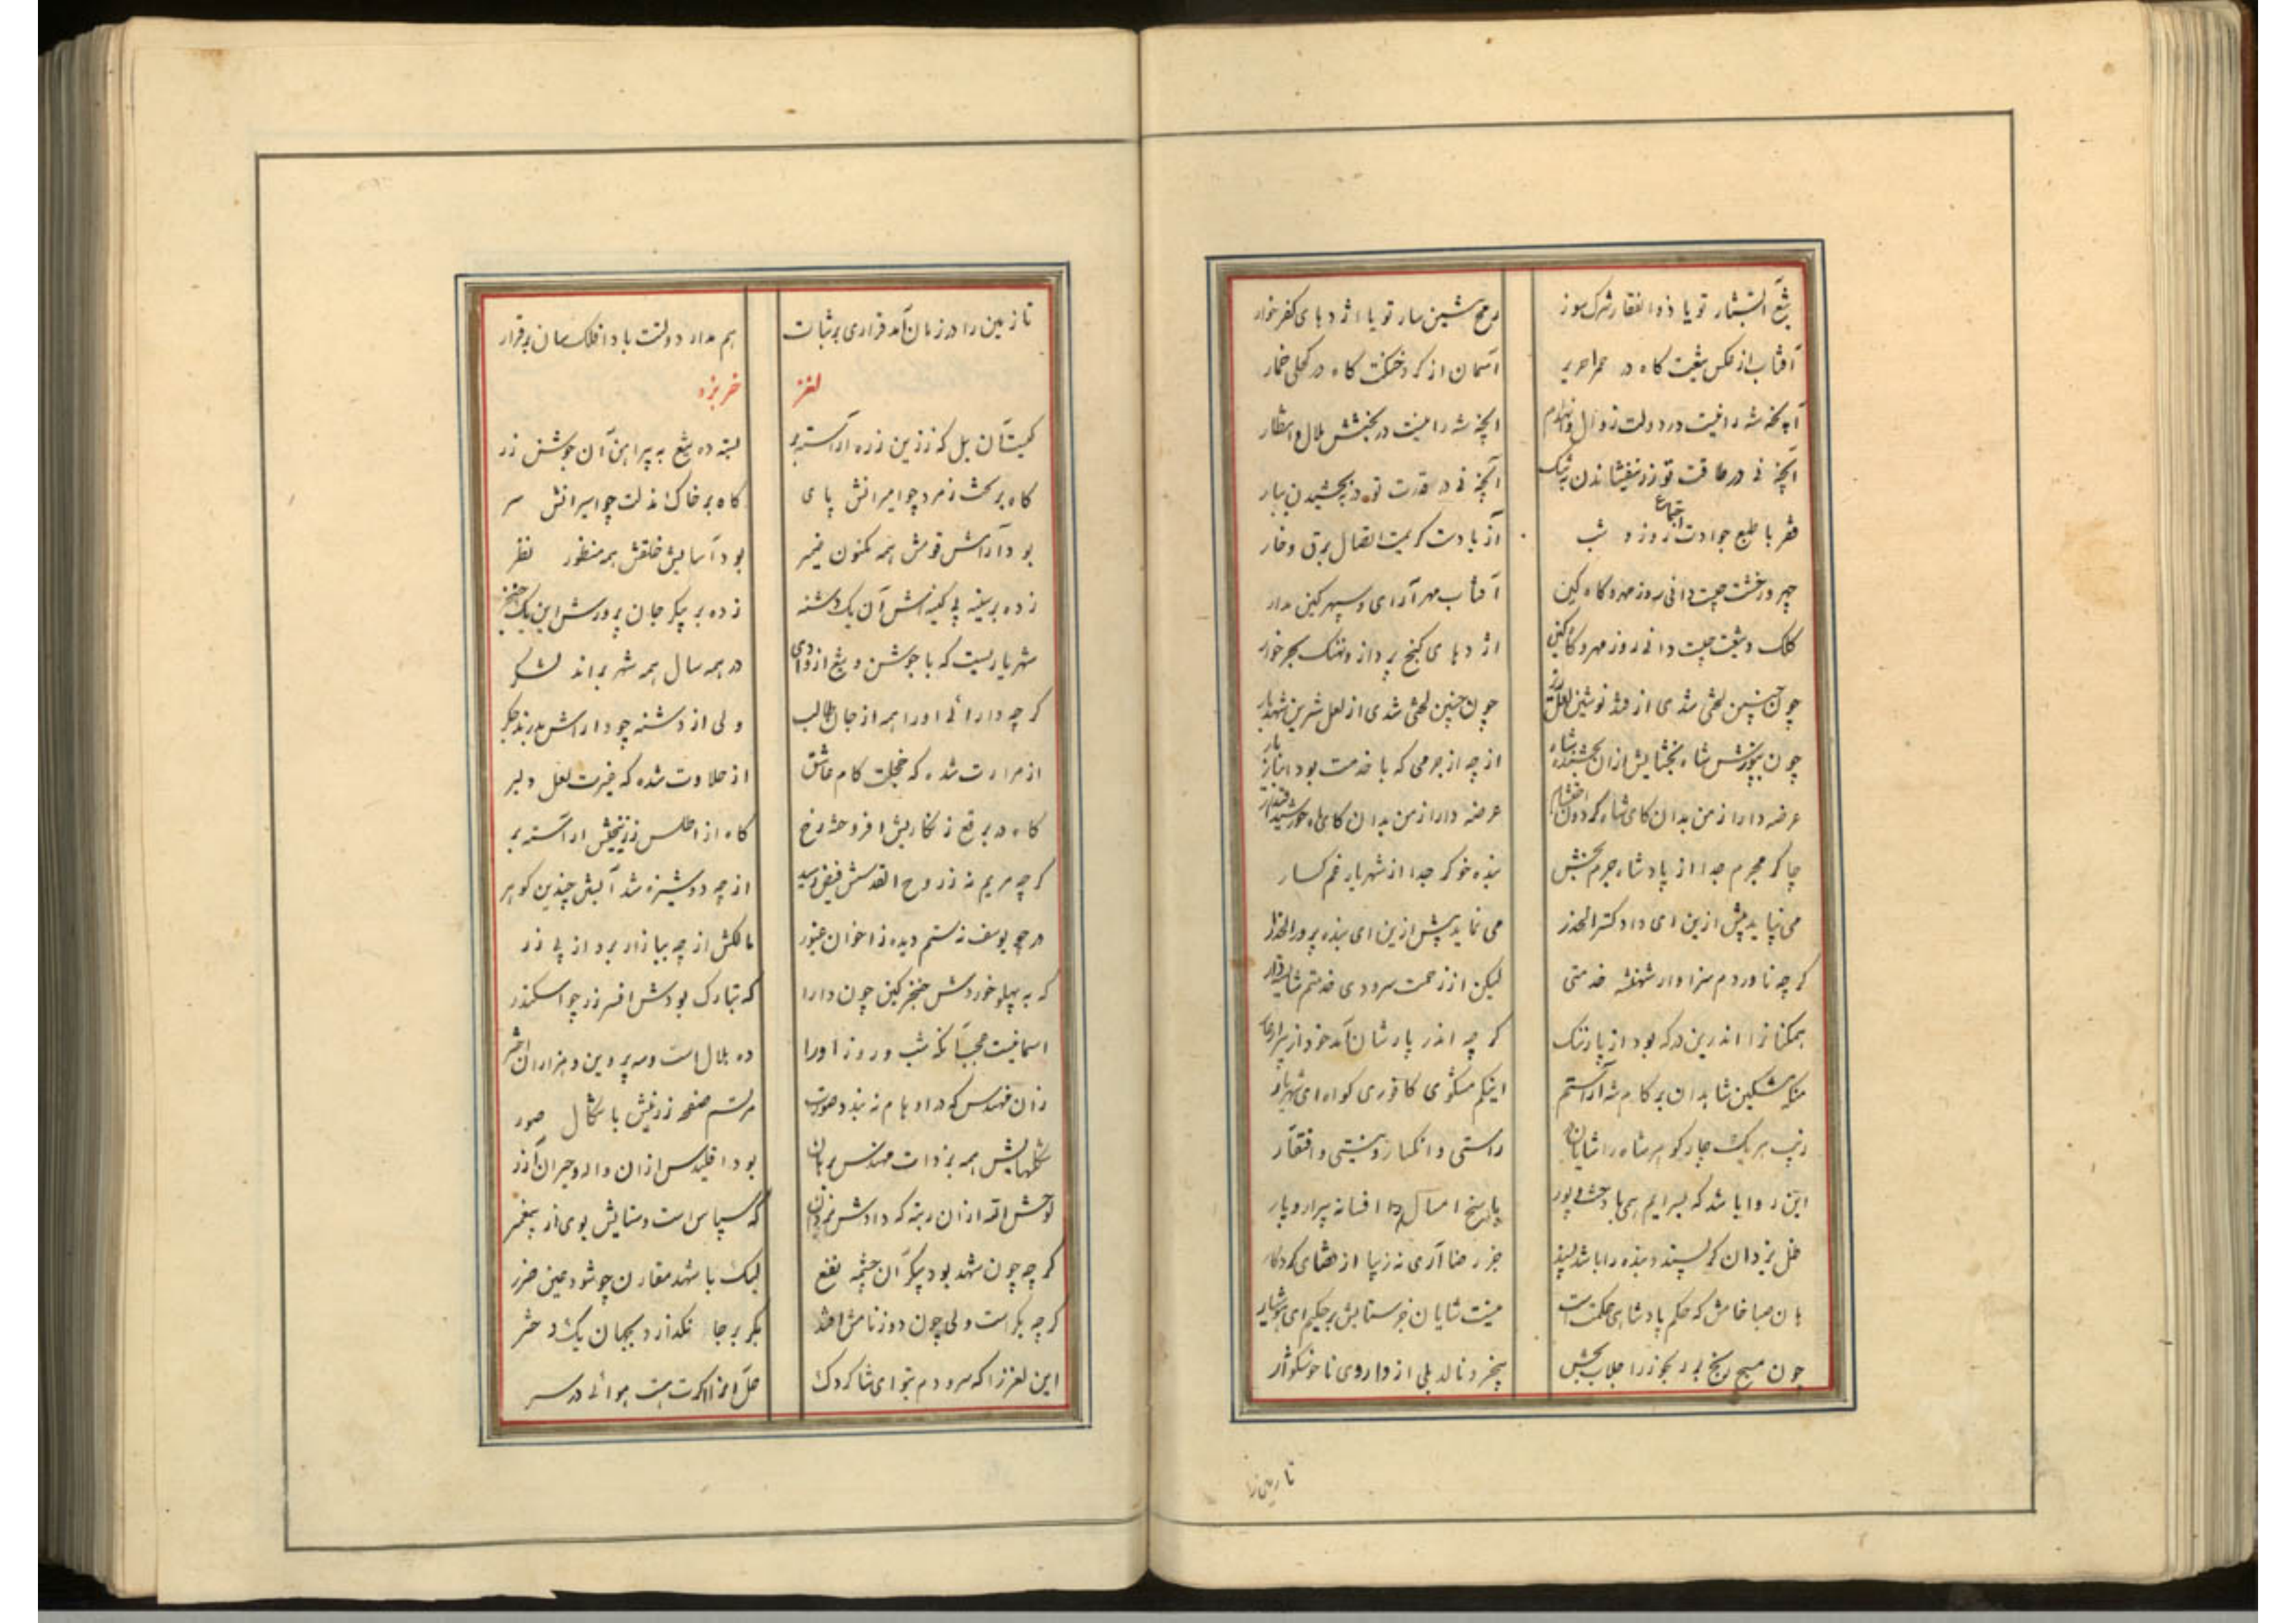 تیغ آتشبار تو یا ذوالفقار شرک سوز
رمح شین سار تو یا اژدهای کفر خوار
آفتاب از عکس تیغت کاه در حمرا حریر
آسمان از کرد خنکت کاه در کحلی خمار
آنچه شه را نیست در دولت زوال و انهدام
آنچه شه را نیست در بخشش ملال و انتظار
آنچه نی در طاقت تو زر نیفشاندن به نیک
آنچه نی در قدرت تو در نبخشیدن ببار
فقر با طبع جوادت اجتماع روز و شب
آز با دست کریمت اتصال برق و خار
چهر و رخشت چیست دانی روز مهر و کاه کین
آفتاب مهر آرای و سپهر کین مدار
کلک و تیغت چیست دانی روز مهر و کاه کین
اژدهای کنج پرداز و نهنک بحر خوار
چون چنین لختی شدی از قند نوشین لعل ریز
چون چنین لختی شدی از لعل شیرین شهد بار
چون بپوزش شاه بخشایش از آن بخشنده شاه
از چه از جرمی که با خدمت بود انباز یار
عرضه دار از من بدان کای شاه کردون احتشام
عرضه دار از من بدان کای ماه خورشید اقتدار
چاکر مجرم جدا از پادشاه جرم بخش
بنده خوکر جدا از شهریار غم کسار
می نپاید پیش ازین ای داد کستر الحذر
می نماید پیش ازین ای بنده پرور الحذار
کرچه ناوردم سزاوار شهنشه خدمتی
لیکن از زحمت سرودی خدمتم شاید قرار
همکنانرا اندرین درکه بود از پار ننک
کرچه اندر پارشان آمد خود از پیرار عار
منکه مشکین شاهدان بر کام شه آراستم
اینکم مشکوی کافوری کواه ای شهریار
زیب هر یک چار کوهر شاه را شایان
راستی و انکسار و نیستی و افتقار
این روا باشد که سرایم همی با دخت پور
پاسخ امسال را افسانه پیرار و پار
ظل یزدان کر پسندد بنده را باشد پسند
جز رضا آری نه زیبا از قضای کردکار
هان صبا خامش که حکم پادشاهی حکمت است
نیست شایان جز ستایش بر حکیم ای هوشیار
چون مسیح رنج بر رنجور را جلاب بخش
بیخرد نالد بلی از داروی ناخوشکوار
تا زمین را
تا زمین را در زمان آمد قراری بر ثبات
هم مدار دولتت باد افلک سان برقرار
لغز
خربزه
کیست آن یل که ز زرین زره آراسته بر
بسته ده تیغ به پیراهن آن جوشن زر
کاه بر تخت زمرد چو امیرانش پای
کاه بر خاک مذلت چو اسیرانش سر
بود آرامش قومش همه مکنون ضمیر
بود آسایش خلقش همه منظور نظر
زده بر سینه بی کینه اش آن یک دشنه
زده بر پیکر جان پرورش این یک خنجر
شهریاریست که با جوشن و تیغ از وادی
در همه سال همه شهر براند لشکر
کرچه دارائی او را همه از جان طالب
ولی از دشنه چو داراش بدرند جکر
از مرارت شده که خجلت کام عاشق
از حلاوت شده که غیرت لعل دلبر
کاه در برقع زنکاریش افروخته رخ
کاه از اطلس زربفتش آراسته بر
کرچه مریم نه ز روح القدسش فیض رسید
از چه دوشیزه شد آبستن چندین کوهر
در چو یوسف نه ستم دیده ز اخوان غیور
مالکش از چه ببازار برد از پی زر
که به پهلو خوردش خنجر کین چون دارا
که تبارک بودش افسر زر چو اسکندر
اسمانیست عجب آنکه شب و روز او را
ده هلال است و مه پروین و هزاران اختر
زان مهندس که در اوهام نه بندد صورت
مرتسم صفحه زرینش باشکال صور
شکلهایش همه بر ذات مهندس برهان
بود اقلیدس ازان واله و حیران آزر
خوش افتد ازان رتبه که دادش یزدان
که سپاس است و ستایش بوی از پیغمبر
کرچه چون شهد بود پیکر آن چشمه نفع
لیک با شهد مقارن چو شود عین ضرر
کرچه بکر است ولی چون دو ز نامش افتد
بکر بر جا نکذارد بجهان یک دختر
این لغز را که سرودم بتو ای شاکردک
حل نما اکرت هست هوائی در سر